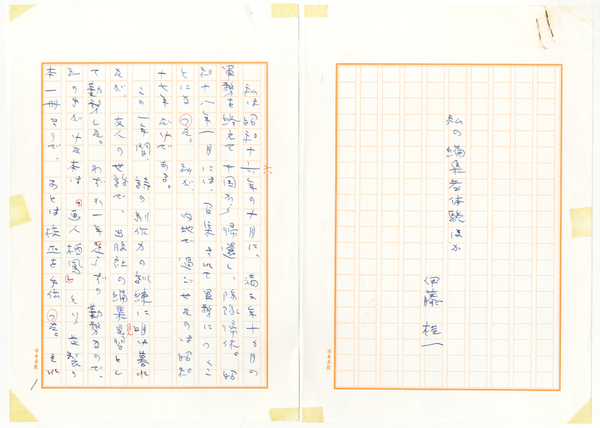 私の編集者体験ほか
伊藤桂一
私は昭和十六年の十月に、満五年十ヵ月の
軍務を終えて中国から帰還し、除隊帰休。昭
和十八年一月には、召集されて軍務につくこ
とになった。私が、内地で過ごせたのは昭和
十七年だけである。
この一年間、詩の制作力の訓練に明け暮れ
たが、友人の世話で、出版社の編集見習とし
て勤務した。わずか一年足らずの勤務なので、
私の手がけた本は「画人栖鳳」という豪製の
本一冊きりで、あとは校正を手伝った。それ
1